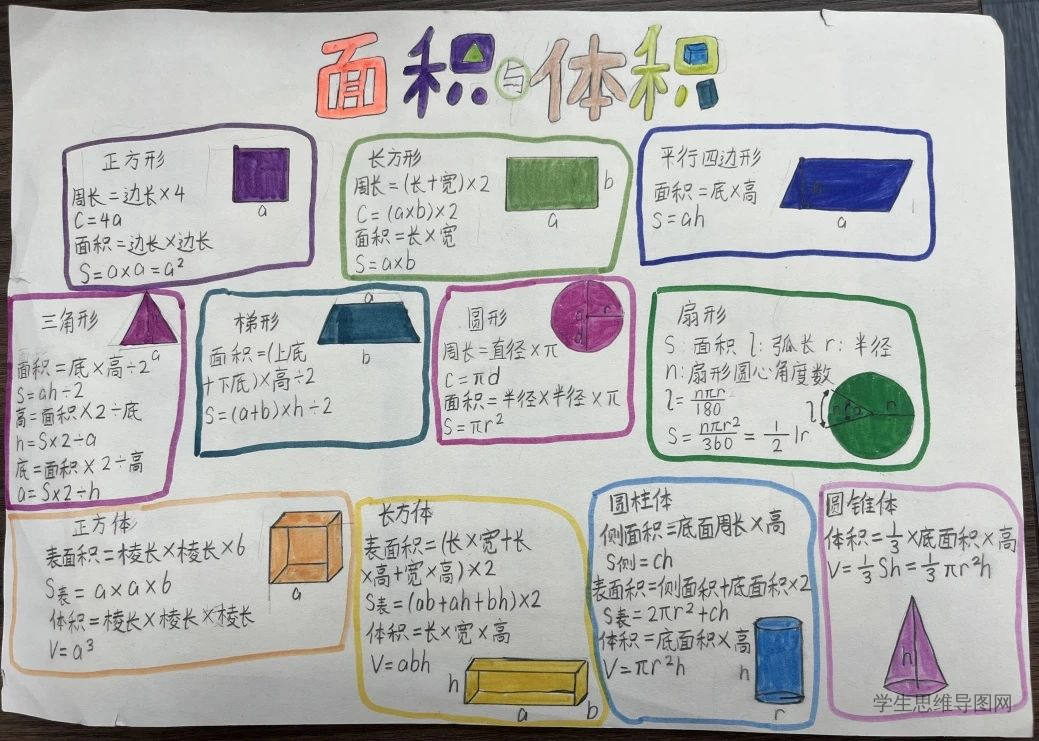 面积与体积
正方形
周长=边长×4
C=4a
面积=边长×边长
S=a×a=a²
a
长方形
周长=(长+宽)×2
C=(a×b)×2
面积=长×宽
S=a×b
b
a
平行四边形
面积=底×高
S=ah
h
a
三角形
面积=底×高÷2
S=ah÷2
高=面积×2÷底
h=S×2÷a
底=面积×2÷高
a=S×2÷h
a
梯形
面积=(上底
+下底)×高÷2
S=(a+b)×h÷2
a
b
圆形
周长=直径×π
C=πd
面积=半径×半径×π
S=πr²
r
d
扇形
S:面积 l:弧长 r:半径
n:扇形圆心角度数
l=nπr/180
S=nπr²/360=1/2 lr
l
正方体
表面积=棱长×棱长×6
S表=a×a×6
体积=棱长×棱长×棱长
V=a³
a
长方体
表面积=(长×宽+长
×高+宽×高)×2
S表=(ab+ah+bh)×2
体积=长×宽×高
V=abh
h
a
b
圆柱体
侧面积=底面周长×高
S侧=ch
表面积=侧面积+底面积×2
S表=2πr²+ch
体积=底面积×高
V=πr²h
h
r
圆锥体
体积=1/3×底面积×高
V=1/3Sh=1/3πr²h
h
学生思维导图网